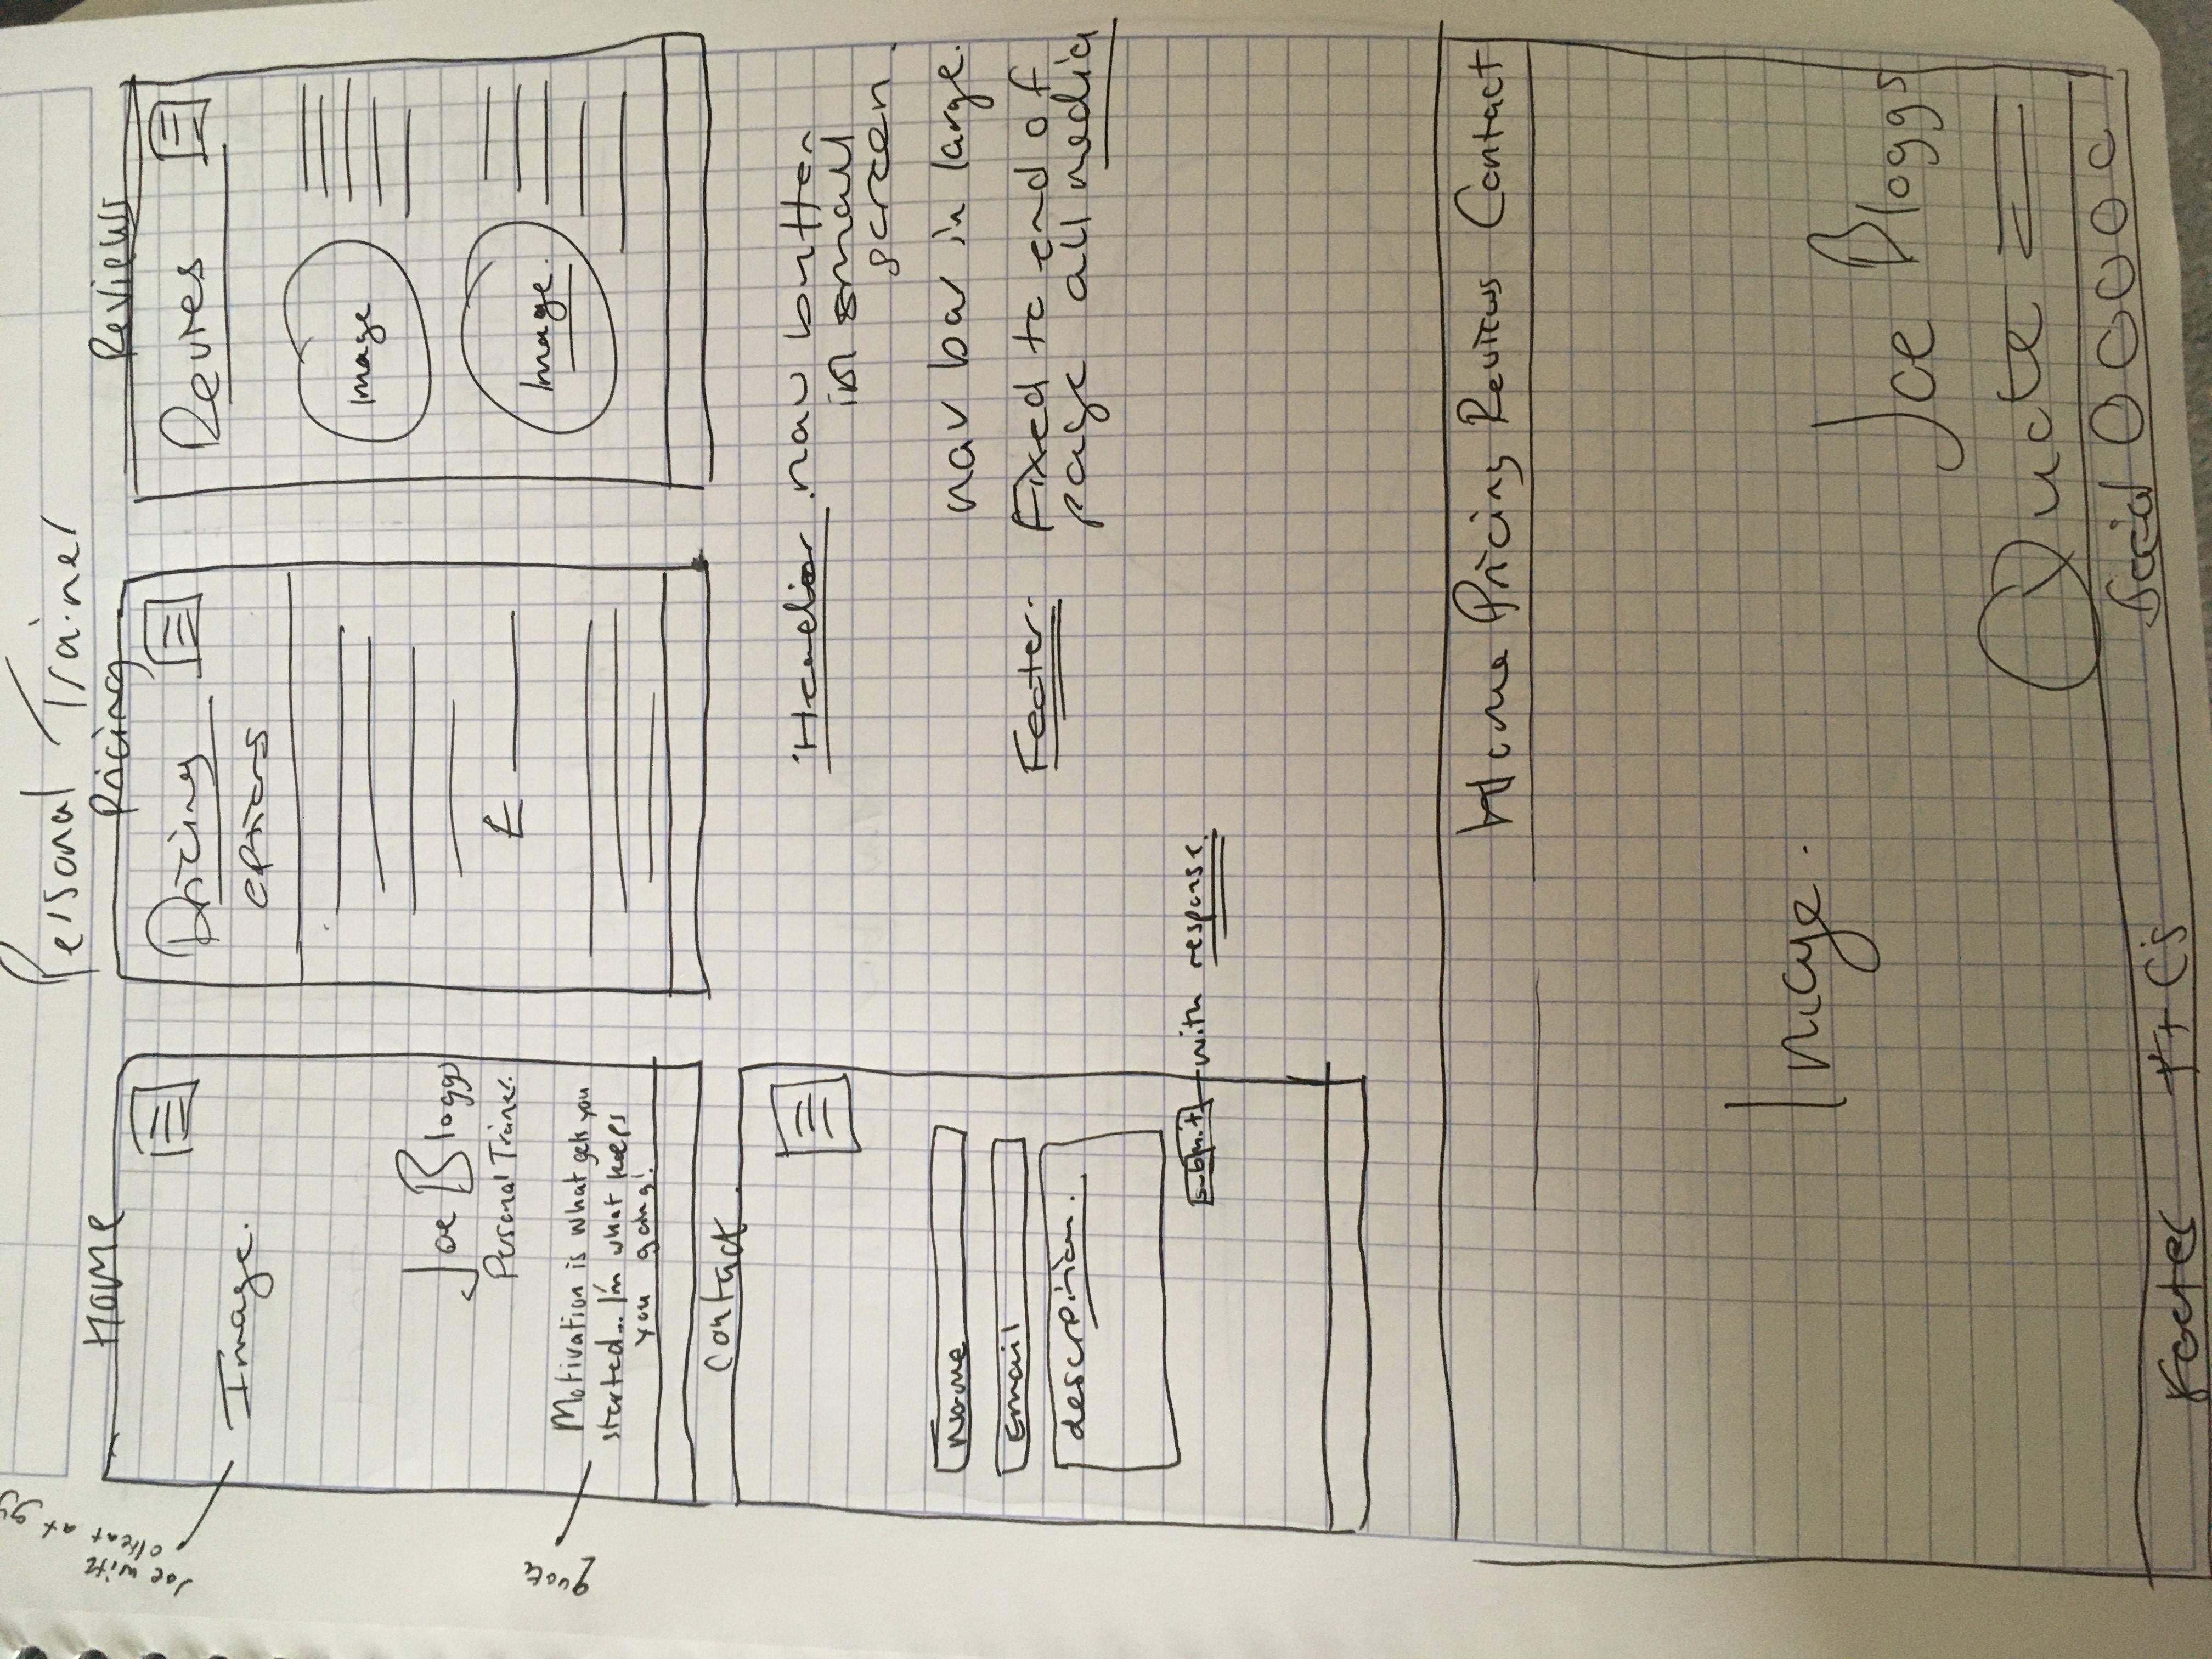 Personal Trainer
Home
Joe with
client at
Image.
Joe Bloggs
Personal Trainer.
quote
Motivation is what gets you
started... I'm what keeps
you going!
Pricing
Pricing
options
£
Reviews
Revies
Image
Image.
Contact
Name
Email
description.
submit with response.
Header. nav button
in small
screen.
nav bar in large.
Footer- Fixed to end of
page all media
Home Pricing Reviews Contact
Image.
Joe Bloggs
Quote
Footer T+Cs Social